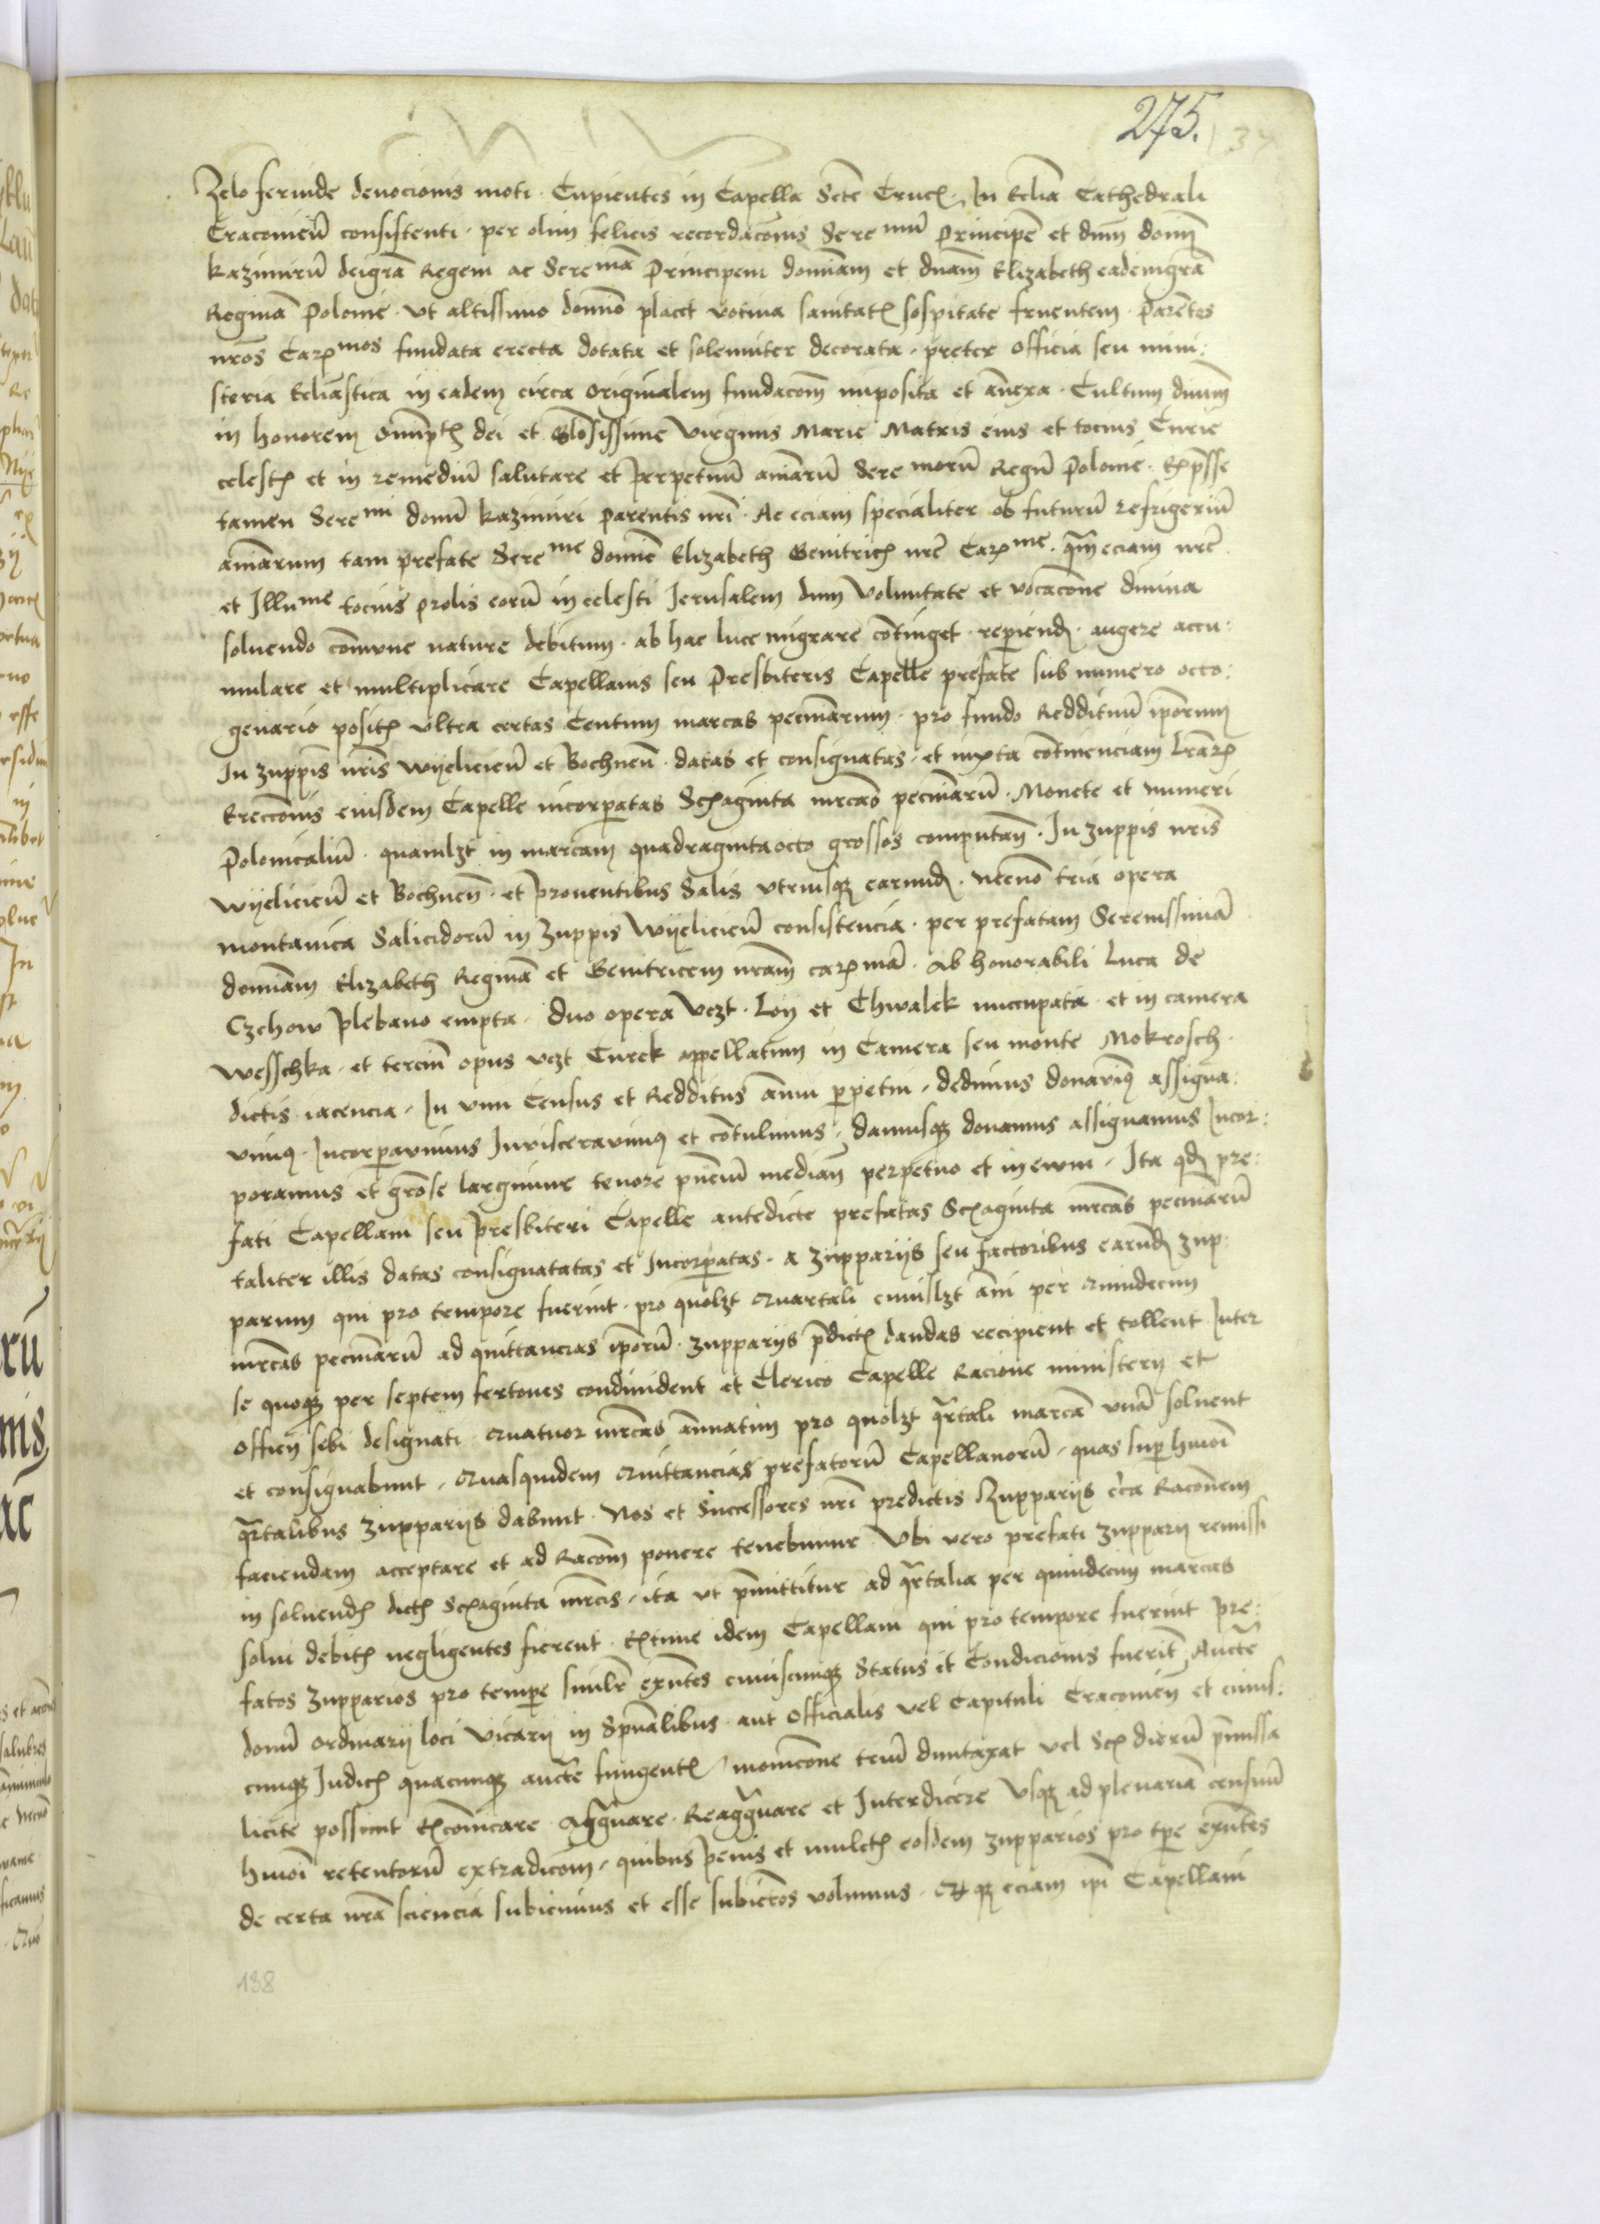 275.
Zelo feruide deuocionis moti. Cupientes in Capella Scte Crucis. In Eclia Cathedrali
Cracouień consistenti. per olim felicis recordacõnis Sere mũ Principẽ et dnm̃ domĩ
Kazimirũ deigrã Regem ac Sere mã Principem dominam et dnam̃ Elizabeth eademgrã
Reginã Polonie. Vt altissimo domĩo placet votiua sanitatis sospitate fruentem. Parẽtes
nrõs Carismos fundata erecta dotata et solemniter decorata. preter officia seu mini:
steria Ecliãstica in eadem circa originalem fundacom̃ imposita et añexa. Cultum diuin̄
in honorem om̃iptis dei et Glõsissime Virginis Marie Matris eius et tocius Curie
celestis et in remediũ salutare et perpetuũ aniarũ Sere morũ Regũ Polonie. Exp̃sse
tamen Sere mi domĩ Kazimiri Parentis nrĩ. Ac eciam specialiter ob futurũ refrigeriũ
aniarum tam prefate Sere me domĩe Elizabeth Genitricis nrẽ Caris me. q̃m eciam nrẽ
et Illu me tocius prolis eorũ in celesti Jerusalem dum Voluntate et vocacõne diuina
soluendo cõmune nature debitum. ab hac luce migrare cõtinget. repiend. augere accu:
mulare et multiplicare Capellanis seu Presbiteris Capelle prefate sub numero octo:
genario positis vltra certas Centum marcas pecuniarum. pro fundo Reddituũ ip̃orum
In zuppis nrĩs Wyelicień et Bochneñ. datas et consignatas. et iuxta cõtinenciam lrãrum
Erecconis eiusdem Capelle incorpatas Sexaginta mrcas pecuniarũ. Monete et numeri
Polonicaliũ. quamlzt in marcam quadragintaocto grossos computañ. In zuppis nrĩs
Wyelicień et Bochneñ. et prouentibus Salis vtriusq earund. necnõ tria opera
montanica Salicidorũ in zuppis Wyelicień consistencia. per prefatam Serenissimã
dominam Elizabeth Reginã et Genitricem nrãm carismã. Ab honorabili Luca de
Czchow plebano empta. duo opera vczt. Loy et Chwalek nuccupata. et in camera
Wesschka. et terciũ opus vczt Curek appellatum in Camera seu monte Mokrosch.
dictis iacencia. In vim Census et Redditus annui ppetui. dedimus donauimus assigna:
uimus. Incorpauimus Inuiscerauimus et cõtulimus. damusq donamus assignamus Incor:
poramus et grõse largimur tenore p̃nciũ mediañ perpetuo et in ewm. Ita qd pre:
fati Capellani seu presbiteri Capelle antedicte prefatas Sexaginta mrcas pecuniarũ
taliter illis datas consignatatas et Incorpatas. a zuppariis seu factoribus earund zup:
parum qui pro tempore fuerint. pro quolzt Quartali cuiuslzt ani per Quindecim
mrcas pecuniarũ ad quittancias ip̃orũ. zuppariis p̃dictis dandas recipient et tollent. Inter
se quoq per septem fertones condiuident et Clerico Capelle Racione ministerii et
officii sibi designati. Quatuor mrcas annuatim pro quolzt q̃rtali marcã vnã soluent
et consignabunt. Quasquidem Quittancias prefatorũ Capellanorũ. quas sup hmõi
q̃rtalibus zuppariis dabunt. Nos et Successores nrĩ predictis Zuppariis c̃ca Racõnem
faciendam acceptare et ad Racom̃ ponere tenebimur. Vbi vero prefati zupparii remissi
in soluendis dictis Sexaginta mrcis. ita vt p̃mittitur ad q̃rtalia per quindecim marcas
solui debitis negligentes fierent. Extunc idem Capellani qui pro tempore fuerint pre:
fatos zupparios pro tempe similr̃ exñtes cuiuscunq Status et Condicionis fuerĩt Auctẽ
domĩ ordinarii loci Vicarii in Spũalibus. aut Officialis vel Capituli Cracouień et cuius:
cunq Judicis quacunq auctẽ fungentis. monicõne triũ duntaxat vel Sex dierũ p̃missa
licite possunt Excõicare. Agg̃uare. Reagg̃uare et Interdicere Vsq ad plenariã censuũ
hmõi retentorũ extradicom̃. quibus penis et mulctis eosdem zupparios pro tpẽ exñtes
de certa nrã sciencia subicimus et esse subiectos volumus. Atq eciam ip̃i Capellani
138